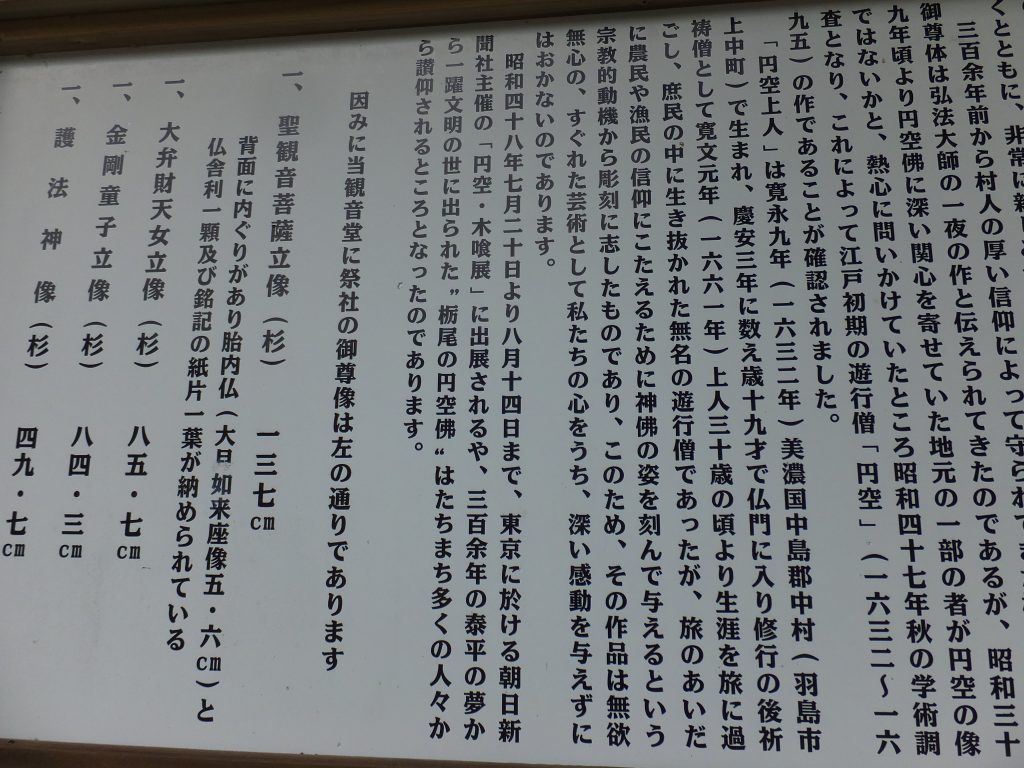 くとともに、非常に
三百余年前から村人の厚い信仰によって守られて
御尊体は弘法大師の一夜の作と伝えられてきたのであるが、昭和三十
九年頃より円空佛に深い関心を寄せていた地元の一部の者が円空の像
ではないかと、熱心に問いかけていたところ昭和四十七年秋の学術調
査となり、これによって江戸初期の遊行僧「円空」(一六三二〜一六
九五)の作であることが確認されました。
「円空上人」は寛永九年(一六三二年)美濃国中島郡中村(羽島市
上中町)で生まれ、慶安三年に数え歳十九才で仏門に入り修行の後祈
祷僧として寛文元年(一六六一年)上人三十歳の頃より生涯を旅に過
ごし、庶民の中に生き抜かれた無名の遊行僧であったが、旅のあいだ
に農民や漁民の信仰にこたえるために神佛の姿を刻んで与えるという
宗教的動機から彫刻に志したものであり、このため、その作品は無欲
無心の、すぐれた芸術として私たちの心をうち、深い感動を与えずに
はおかないのであります。
昭和四十八年七月二十日より八月十四日まで、東京に於ける朝日新
聞社主催の「円空・木喰展」に出展されるや、三百余年の泰平の夢か
ら一躍文明の世に出られた〝栃尾の円空佛〟はたちまち多くの人々か
ら讃仰されるところとなったのであります。
因みに当観音堂に祭社の御尊像は左の通りであります
一、聖観音菩薩立像(杉) 一三七cm
背面に内ぐりがあり胎内仏(大日如来座像五・六cm)と
仏舎利一顆及び銘記の紙片一葉が納められている
一、大弁財天女立像(杉) 八五・七cm
一、金剛童子立像(杉) 八四・三cm
一、護法神像(杉) 四九・七cm